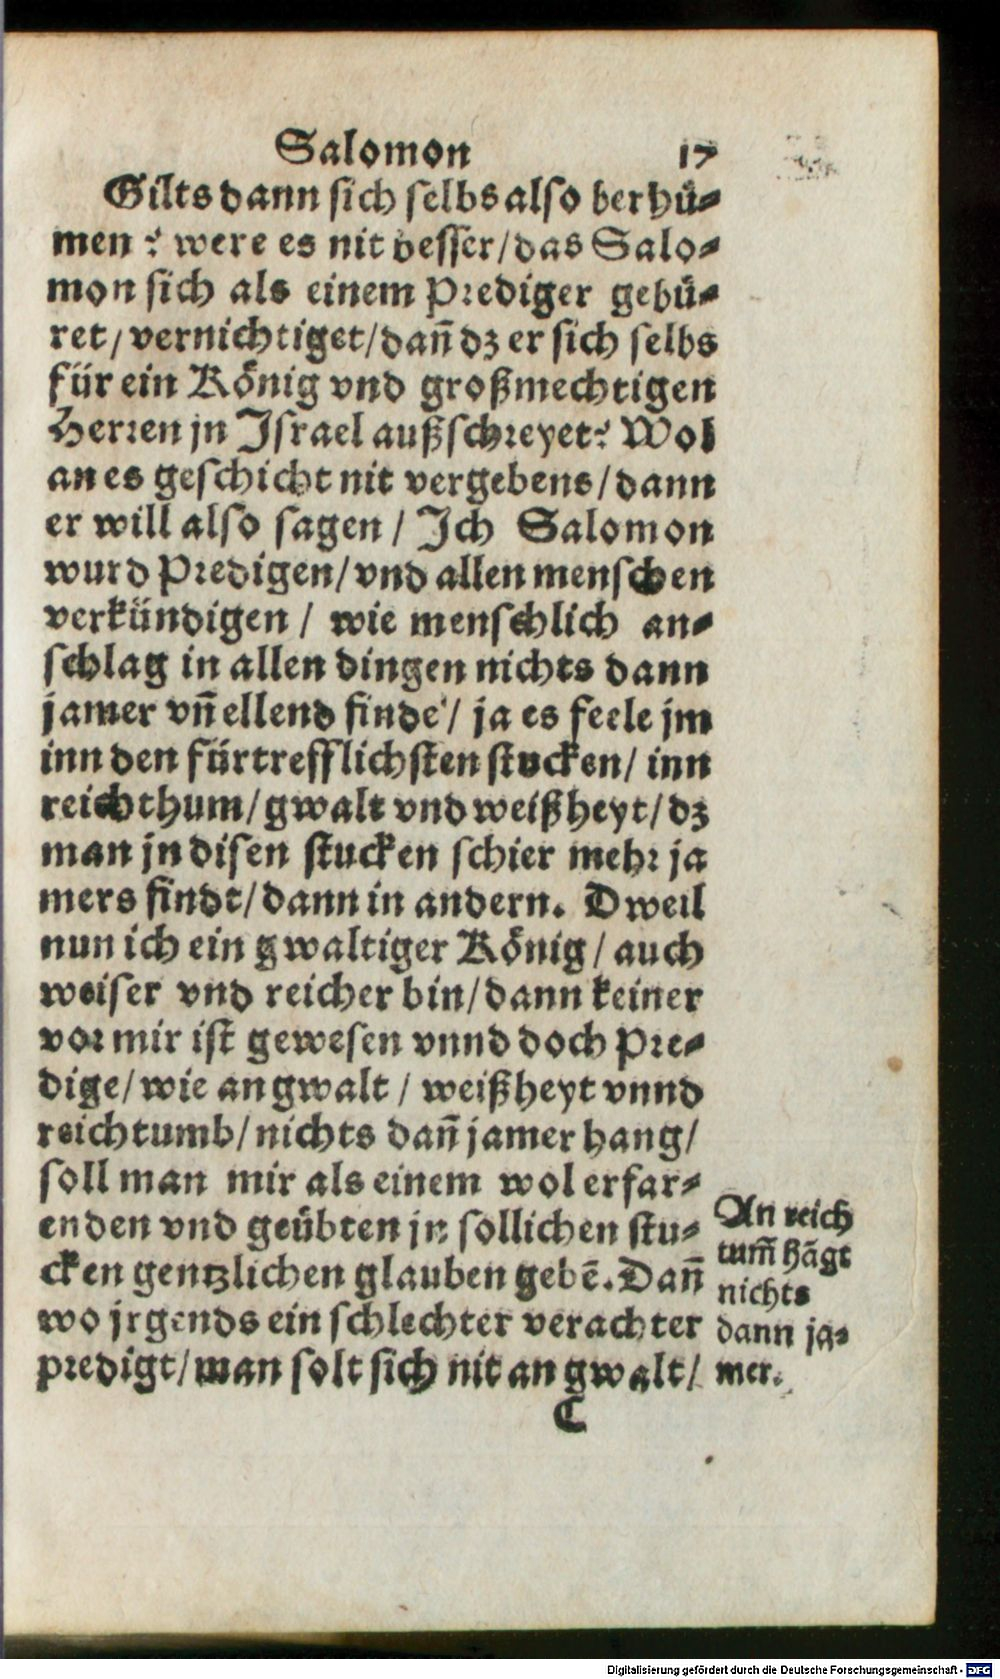 Salomon 17
Gilts dann sich selbs also berhü⸗
men? were es nit besser/das Salo⸗
mon sich als einem Prediger gebü⸗
ret/vernichtiget/dañ dz er sich selbs
für ein König vnd großmechtigen
Herren jn Israel außschreyet? Wol
an es geschicht nit vergebens/dann
er will also sagen/ Ich Salomon
wurd Predigen/vnd allen menschen
verkündigen/ wie menschlich an⸗
schlag in allen dingen nichts dann
jamer vñ ellend finde/ ja es feele jm
inn den fürtrefflichsten stucken/ inn
reichthum/gwalt vnd weißheyt/dz
man jn disen stucken schier mehr ja
mers findt/dann in andern. Dweil
nun ich ein gwaltiger König/auch
weiser vnd reicher bin/dann keiner
vor mir ist gewesen vnnd doch Pre⸗
dige/wie an gwalt/ weißheyt vnnd
reichtumb/nichts dañ jamer hang/
soll man mir als einem wol erfar⸗
enden vnd geübten jn sollichen stu⸗
cken gentzlichen glauben gebē. Dañ
wo jrgends ein schlechter verachter
predigt/man solt sich nit an gwalt/
An reich
tum̃ hãgt
nichts
dann ja⸗
mer.
C
Digitalisierung gefördert durch die Deutsche Forschungsgemeinschaft - DFG